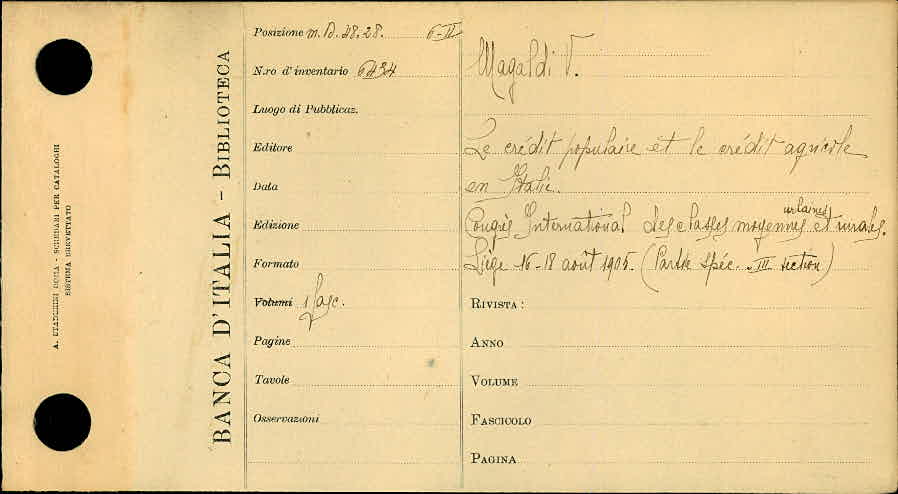 A. STADERINI ROMA - SCHEDARI PER CATALOGHI
SISTEMA BREVETTATO
BANCA D'ITALIA - BIBLIOTECA
Posizione m. D. 48.28. 6-II
N.ro d'inventario 6434
Luogo di Pubblicaz.
Editore
Data
Edizione
Formato
Volumi 1 fasc.
Pagine
Tavole
Osservazioni
Magaldi V.
Le crédit populaire et le crédit agricole
en Italie.
Congrès International des classes moyennes urbaines et rurales.
Liège 16-18 août 1905. (Partie spéc. III section)
RIVISTA:
ANNO
VOLUME
FASCICOLO
PAGINA